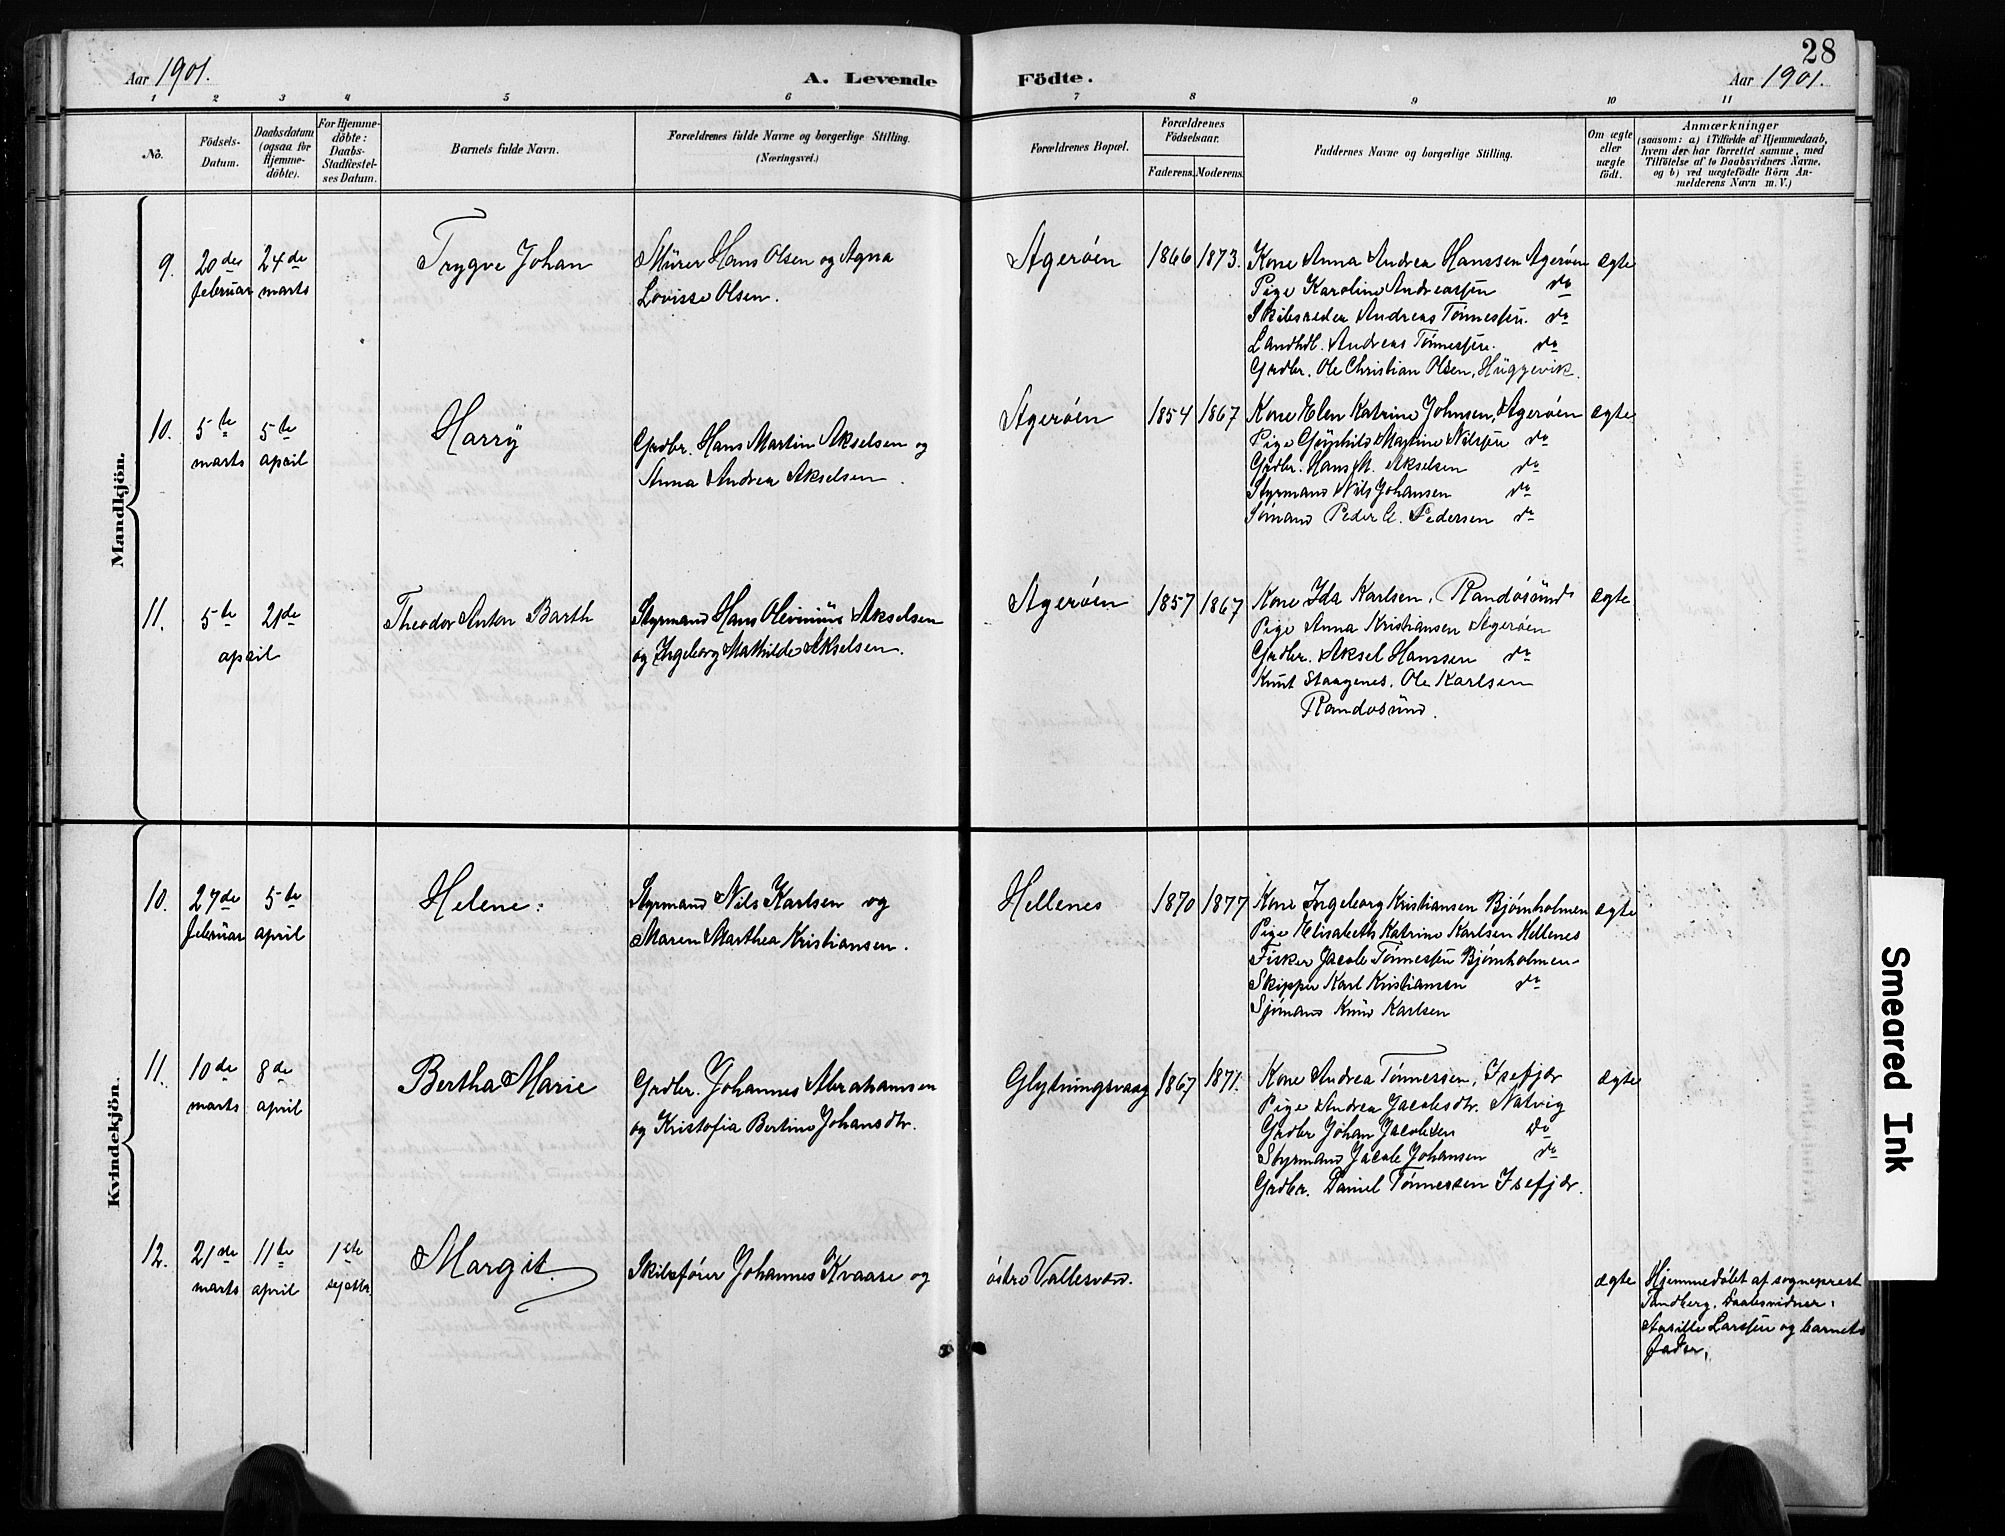 28
Aar 1901.
A. Levende Födte.
Aar 1901.
1 2 3 4 5 6 7 8 9 10 11
No.
Födsels-Datum.
Daabsdatum (ogsaa for Hjemme-döbte).
For Hjemme-döbte: Daabs-Stadfæstel-ses Datum.
Barnets fulde Navn.
Forældrenes fulde Navne og borgerlige Stilling.
(Næringsvei.)
Forældrenes Bopæl.
Forældrenes Födselsaar.
Faderens. Moderens.
Faddernes Navne og borgerlige Stilling.
Om ægte eller uægte födt.
Anmærkninger
(saasom: a) i Tilfælde af Hjemmedaab,
hvem der har forrettet samme, med
Tilföielse af to Daabsvidners Navne,
og b) ved uægtefödte Börn An-
melderens Navn m. V.)
Mandkjön.
9. 20de februar 24de marts
Trygve Johan
Mürer Hans Olsen og Agna
Lovisse Olsen.
Agerøen 1866 1873.
Kone Anna Andrea Hanssen Agerøen ægte
Pige Karoline Andreassen do
Skibsreder Andreas Tønnessen. do
Landhdl. Andreas Tønnessen. do
Grdbr. Ole Christian Olsen, Hüggevik.
10. 5te marts 5te april
Harry
Grdbr. Hans Martin Akselsen og
Anna Andrea Akselsen.
Agerøen 1854 1867
Kone Elen Katrine Johnsen, Agerøen ægte
Pige Martine Nilssen do
Grdbr. Hans M. Akselsen do
Styrmand Nils Johansen do
Sømand Peder Pedersen do
11. 5te 21de april
Theodor Anton Barth
Styrmand Hans Akselsen
og Ingeborg Mathilde Akselsen.
Agerøen 1857 1867
Kone Ida Karlsen, Randøsünd ægte
Pige Anna Kristiansen Agerøen
Grdbr. Aksel Hanssen do
Knut Staagenes. Ole Karlsen
Randøsünd.
Kvindekjön.
10. 27de februar 5te april
Helene.
Styrmand Nils Karlsen og
Maren Marthea Kristiansen.
Hellenes 1870 1877
Kone Ingeborg Kristiansen Bjørnholmen ægte
Pige Elisabeth Katrine Karlsen Hellenes
Fisker Jacob Tønnessen Bjørnholmen
Skipper Karl Kristiansen do
Sjømand Knud Karlsen
11. 10de marts 8de april
Bertha Marie
Grdbr. Johannes Abrahamsen
og Kristofia Bertine Johansdtr.
Glytningsvaag 1867 1871.
Kone Andrea Tønnessen, Isefjær ægte
Pige Andrea Jacobsdtr. Natvig
Grdbr Johan Jacobsen do
Styrmand Jacob Johansen do
Grdbr. Daniel Tønnessen Isefjær.
12. 21de marts 11te april 1ste septbr.
Margit.
Skibsfører Johannes Kvaase og
østre Vallesværd.
ægte
Hjemmedøbt af sogneprest
Tandberg. Daabsvidner:
Larssen og barnets
fader.
Smeared Ink